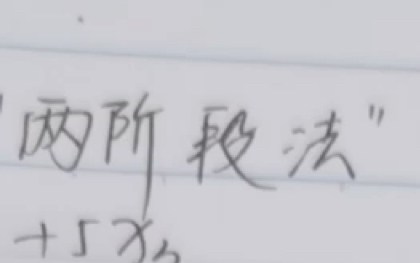 "两阶段法"
+5x₂